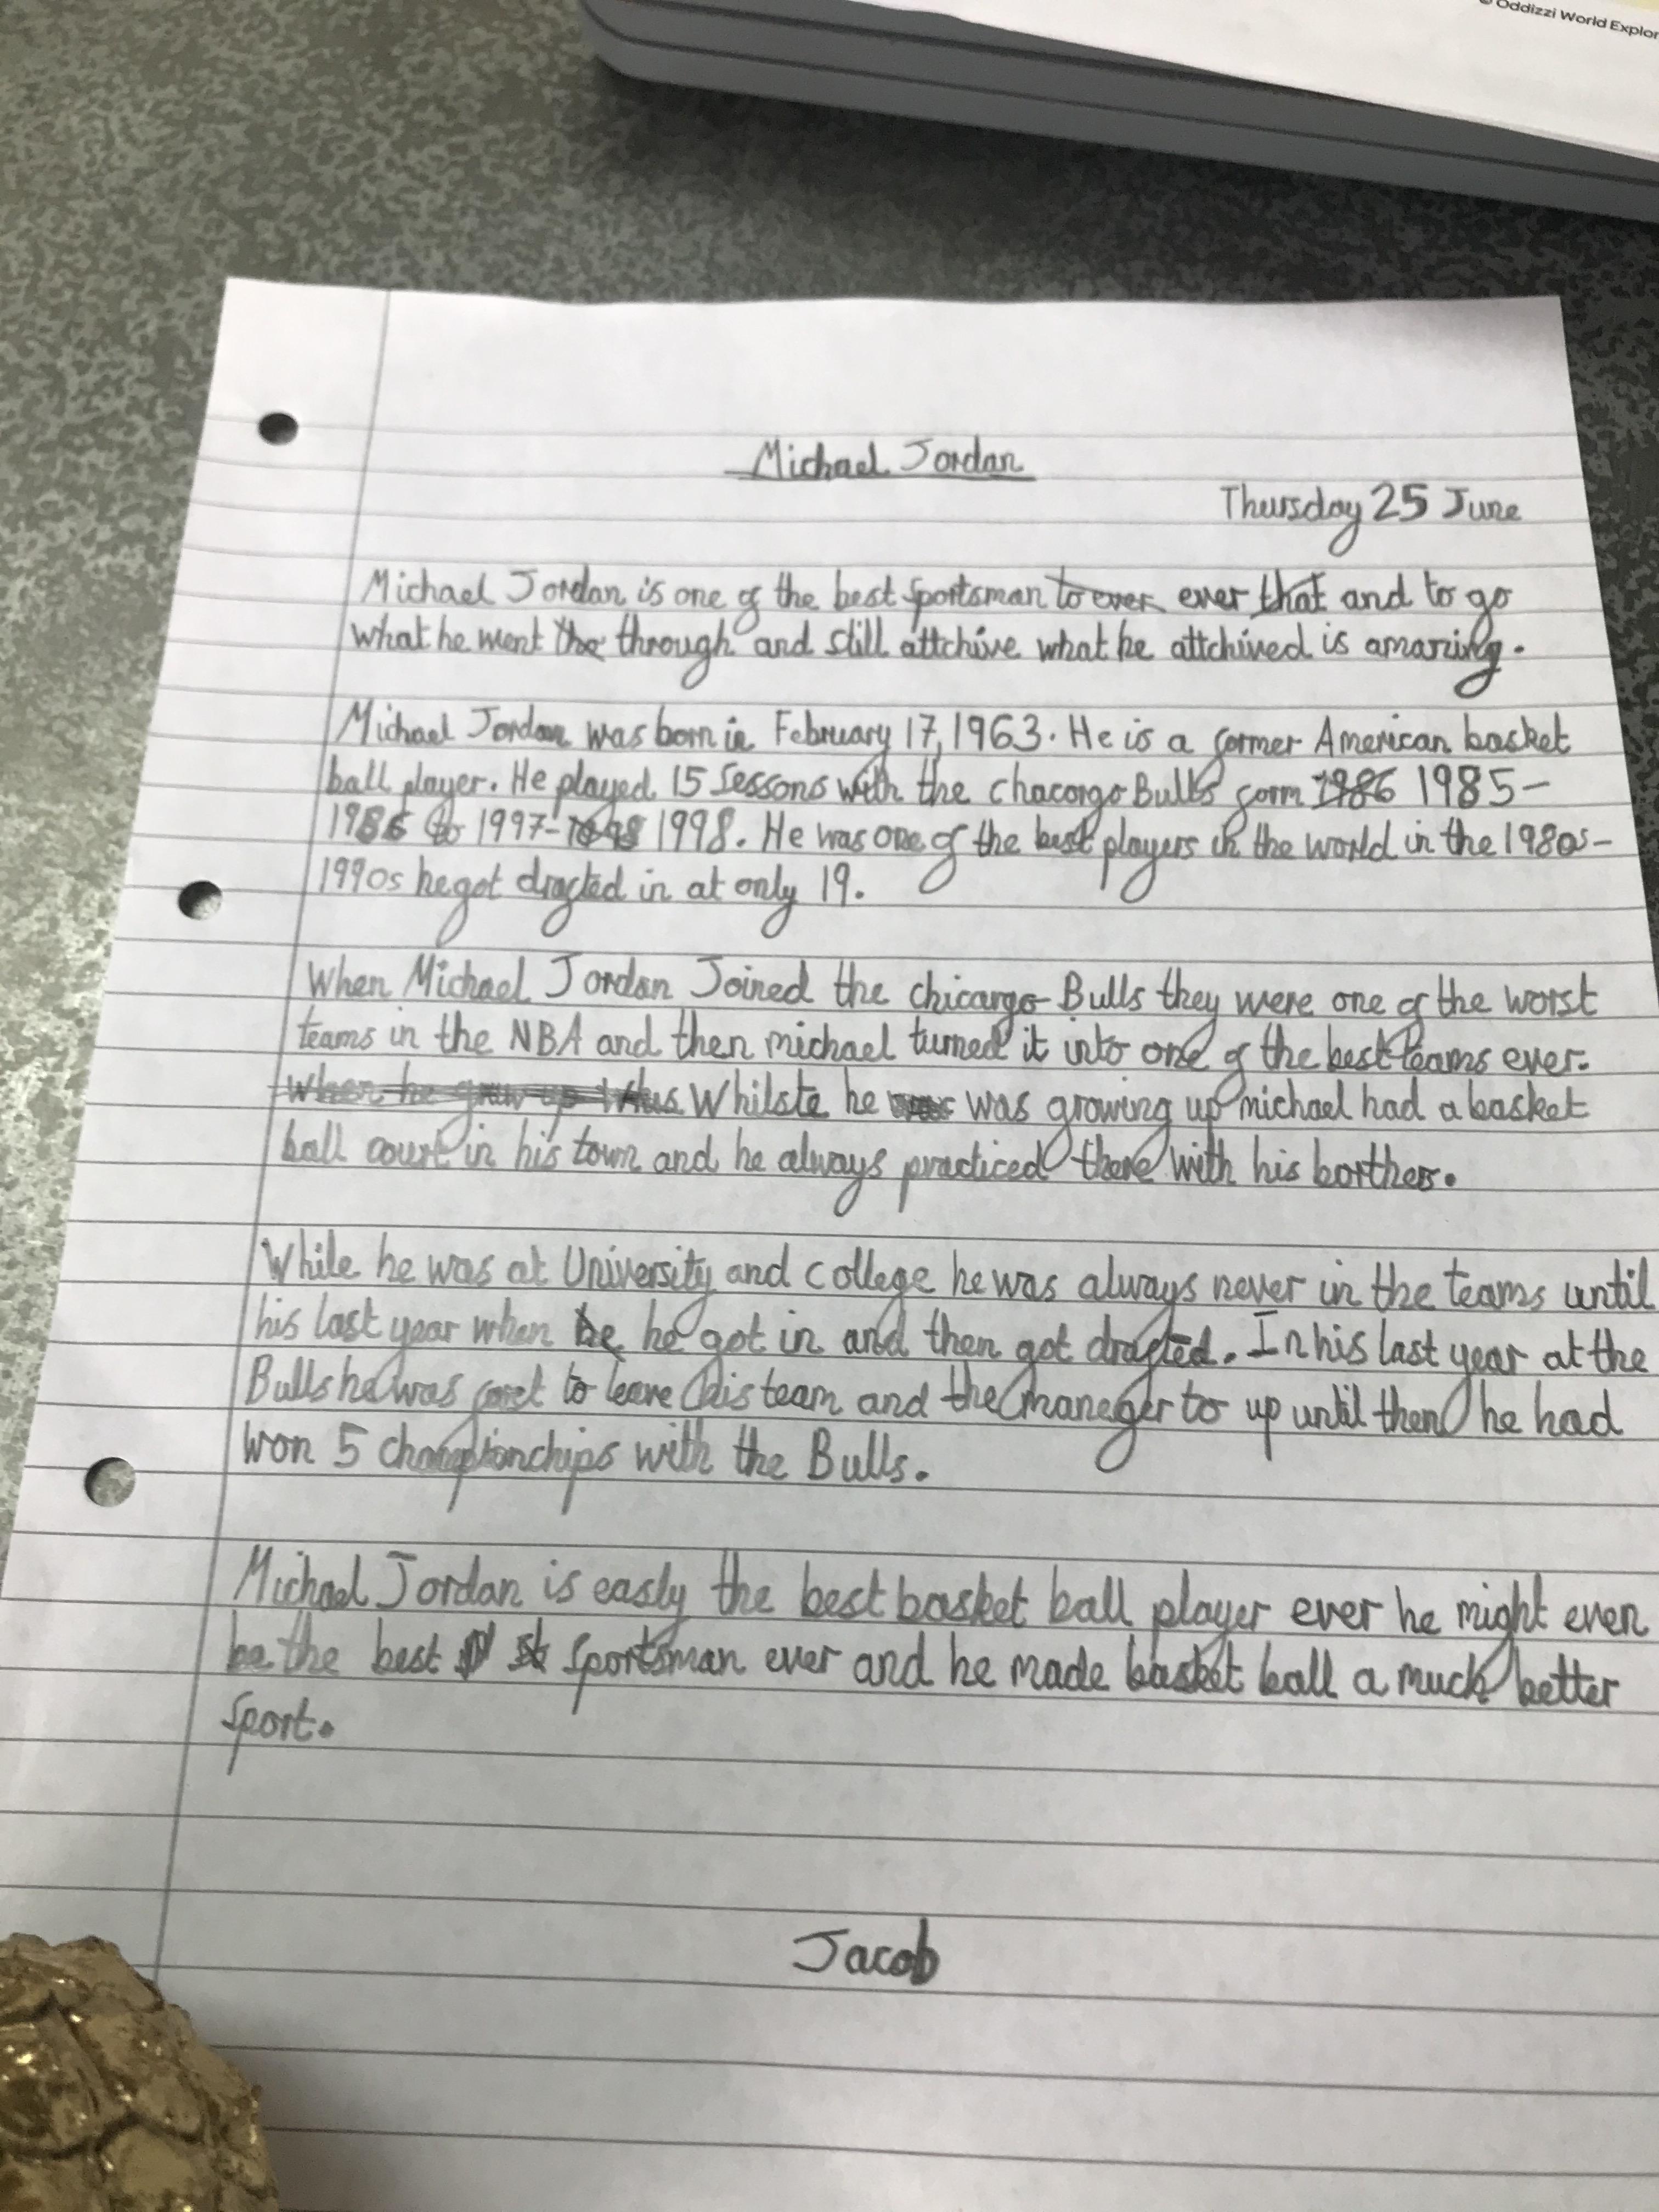 © Oddizzi World Explor
Michael Jordan
Thursday 25 June
Michael Jordan is one of the best sportsman to ever ever that and to go
what he went tho through and still attchive what he attchived is amazing.
Michael Jordan was born in February 17, 1963. He is a former American basket
ball player. He played 15 sessons with the chacorgo Bulls form 1986 1985-
1986 to 1997- 1998. He was one of the best players in the world in the 1980s-
1990s he got drafted in at only 19.
When Michael Jordan Joined the chicargo Bulls they were one of the worst
teams in the NBA and then michael turned it into one of the best teams ever.
When he grew up Whilste he was growing up michael had a basket
ball court in his town and he always practiced there with his borthers.
While he was at University and college he was always never in the teams until
his last year when he he got in and then got drafted. In his last year at the
Bulls he was to leave his team and the maneger to up until then he had
won 5 championchips with the Bulls.
Michael Jordan is easly the best basket ball player ever he might even
be the best sportsman ever and he made basket ball a much better
sport.
Jacob